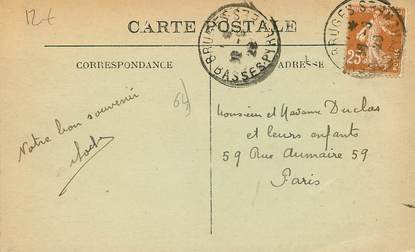 12€
CARTE POSTALE
CORRESPONDANCE
ADRESSE
BRUGES
BASSES PYR
BRUGES
25
POSTES
64
Monsieur et Madame Duclos
et leurs enfants
59 Rue Aumaire 59
Paris
Notre bon souvenir